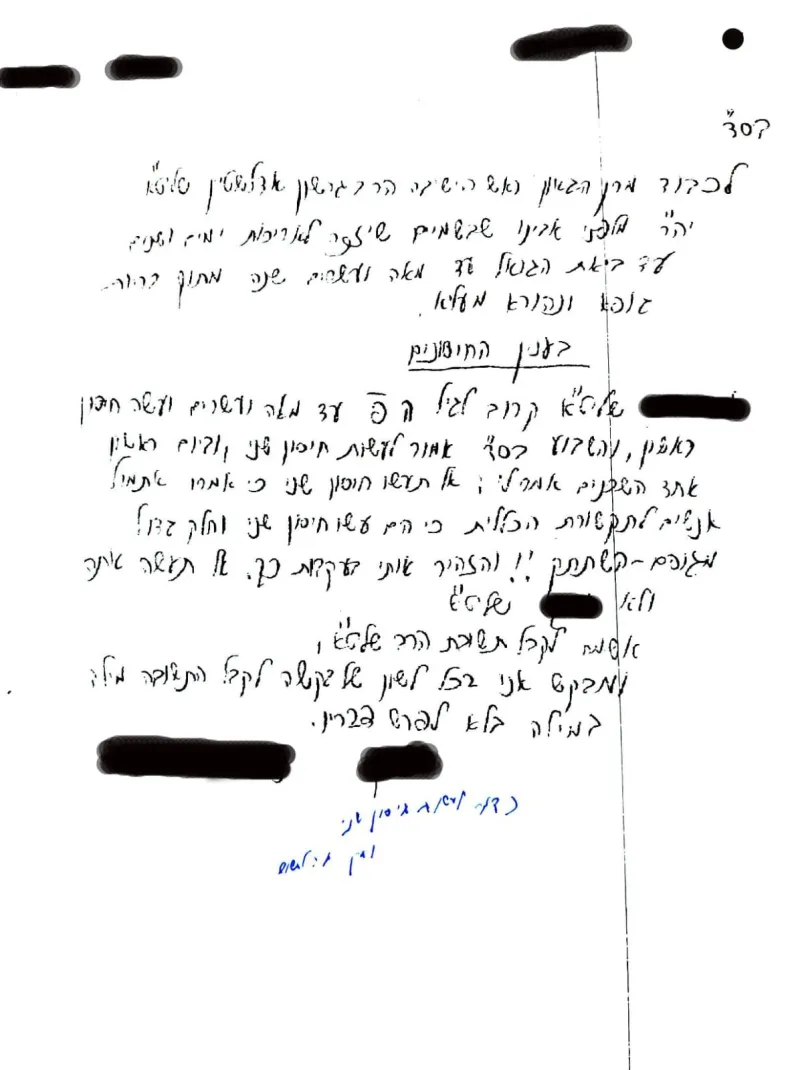 בס"ד
לכבוד מרן הגאון ראש הישיבה הרב גרשון אדלשטין שליט"א
יה"ר מלפני אבינו שבשמים שיזכה לאריכות ימים ושנים
עד ביאת הגואל עד מאה ועשרים שנה מתוך בריות
גופא ונהורא מעליא.
בענין החיסונים
שליט"א קרוב לגיל ה פ עד מאה ועשרים ועשה חיסון
ראשון, והשבוע בס"ד אמור לעשות חיסון שני, וביום ראשון
אחד השכנים אמר לי: אל תעשו חיסון שני כי אמרו אתמול
אנשים לתקשורת הכללית כי הם עשו חיסון שני וחלק גדול
מגופם - השתתק!! והזהיר אותי בעקבות כך, אל תעשה אתה
ולא שליט"א
אשמח לקבל תשובת הרב שליט"א,
ומבקש אני בכל לשון של בקשה לקבל התשובה מילה
במילה בלא לפרש דבריו.
כדאי לעשות חיסון שני
ואין לחשוש